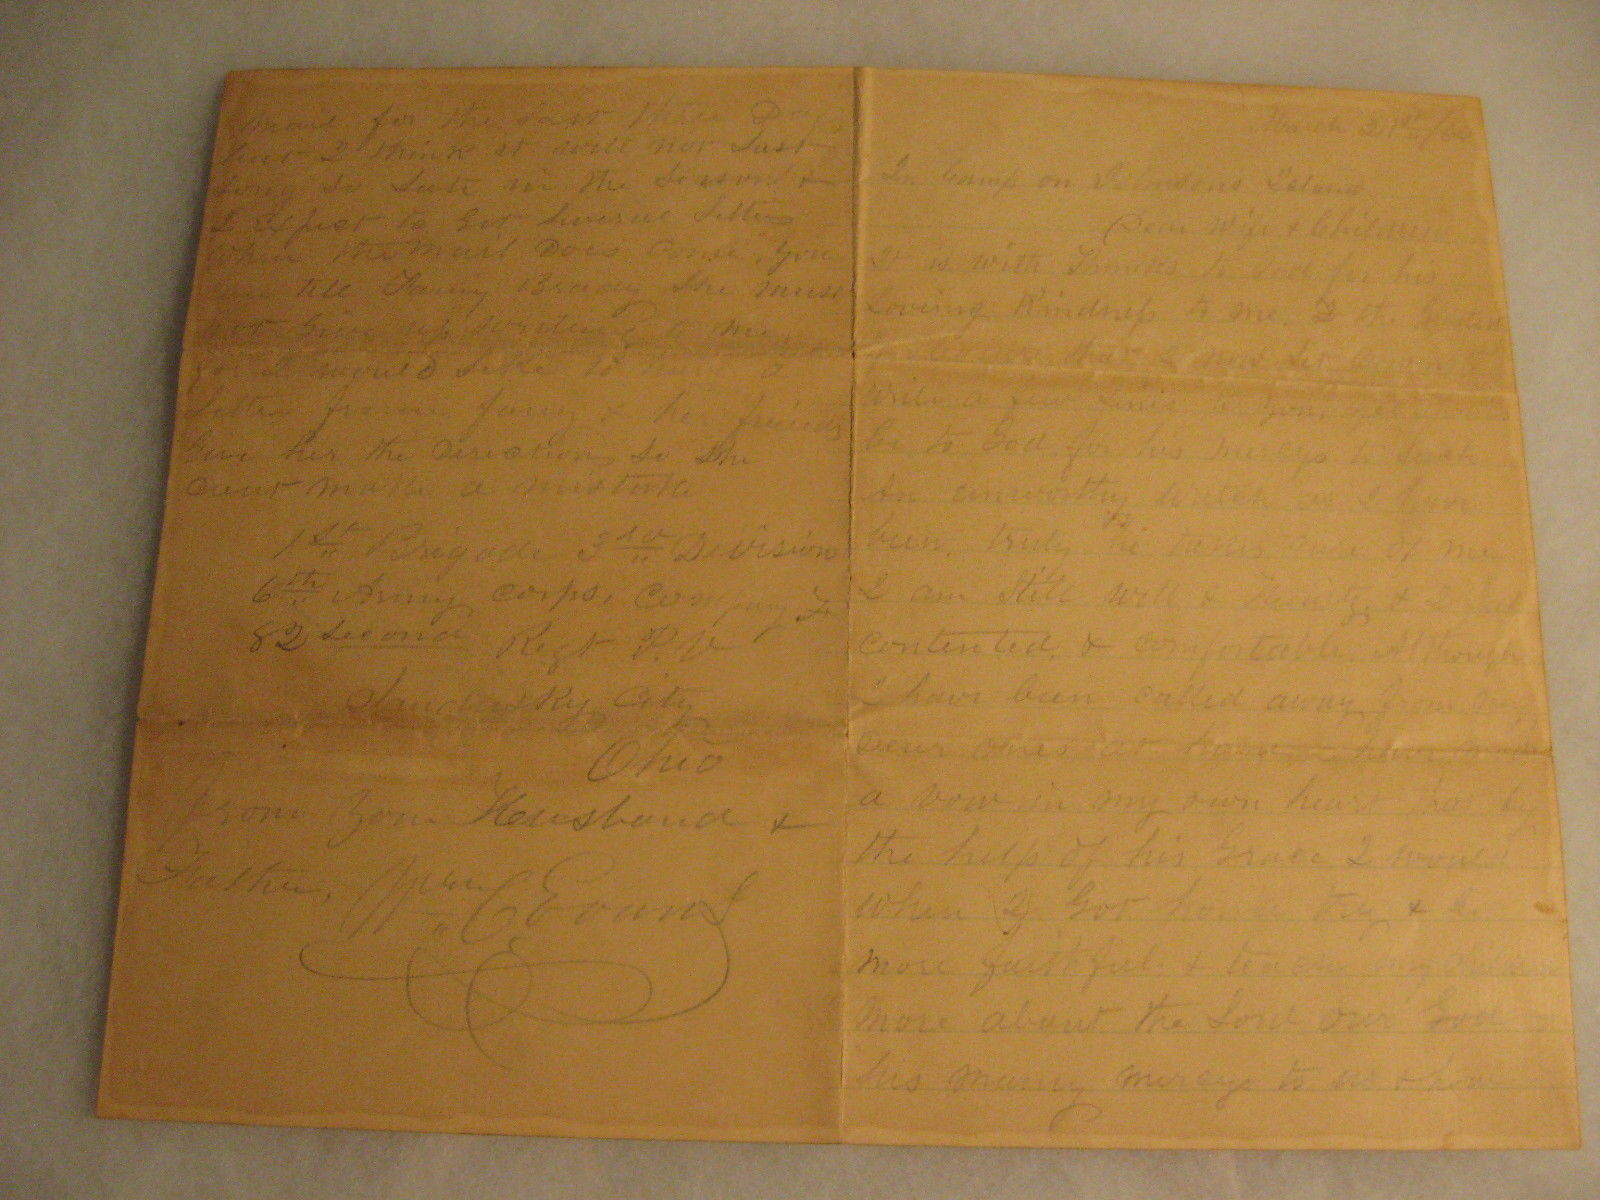 March 21st/64
In Camp on Johnsons Island
Dear Wife & Children
It is with Thanks to God for his
Loving Kindness to me, & the
that I now set down to
write a few lines to you,
be to God for his mercys to such
An unworthy wretch as I have
been, truly he takes care of me
I am still well & hearty, & I feel
contented, & comfortable. Although
I have been called away from my
Dear ones at home I have made
a vow in my own heart that by
the help of his Grace I would
when I Got home try & be
more faithful, & teach my children
More about the Lord our God
his many mercys to us & how
mail for the last three Days
but I think it will not Last
Long so Late in the Season &
I Expect to Get several Letters
when the Mail Does Come, you
can tell Fanny Brady She must
not Give up writeing to me
for I would Like to have a
Letter from fanny & her friends
Give her the Directions so She
cant make a mistake
1st Brigade 3rd Division
6th Army corps, Company F
82 second Regt P. V
Sandusky City
Ohio
from Your Husband &
Father, Wm C Evans